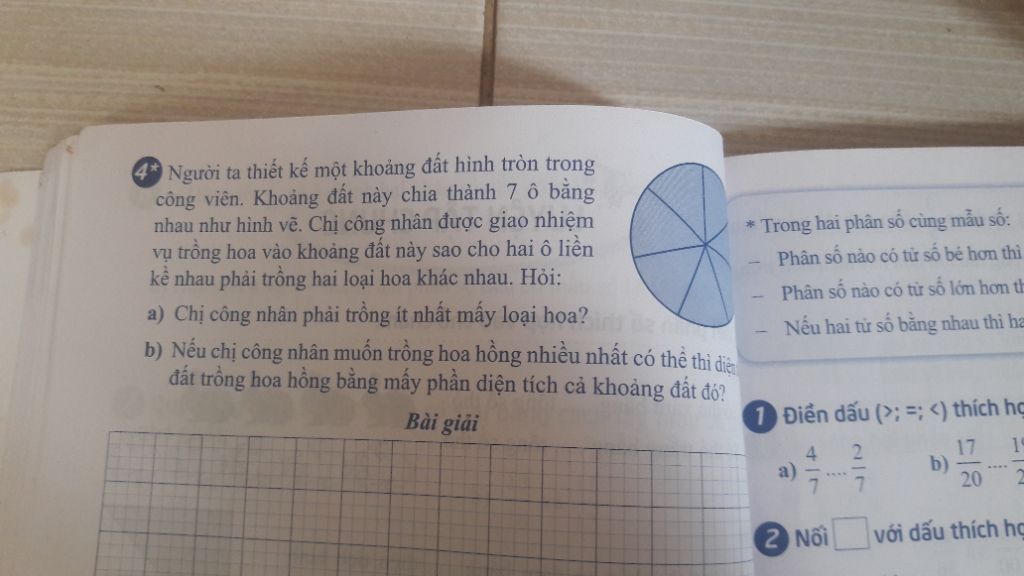 4* Người ta thiết kế một khoảng đất hình tròn trong
công viên. Khoảng đất này chia thành 7 ô bằng
nhau như hình vẽ. Chị công nhân được giao nhiệm
vụ trồng hoa vào khoảng đất này sao cho hai ô liền
kề nhau phải trồng hai loại hoa khác nhau. Hỏi:
a) Chị công nhân phải trồng ít nhất mấy loại hoa?
b) Nếu chị công nhân muốn trồng hoa hồng nhiều nhất có thể thì diện
đất trồng hoa hồng bằng mấy phần diện tích cả khoảng đất đó?
Bài giải
* Trong hai phân số cùng mẫu số:
– Phân số nào có tử số bé hơn thì
– Phân số nào có tử số lớn hơn th
– Nếu hai tử số bằng nhau thì ha
1 Điền dấu (>; =; <) thích hợ
a) 4/7 .... 2/7 b) 17/20 ....
2 Nối □ với dấu thích hợ